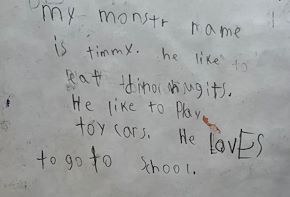 my monstr name
is timmy. he like to
eat thinor nugits.
He like to Play
toy cars. He LovES
to go to school.